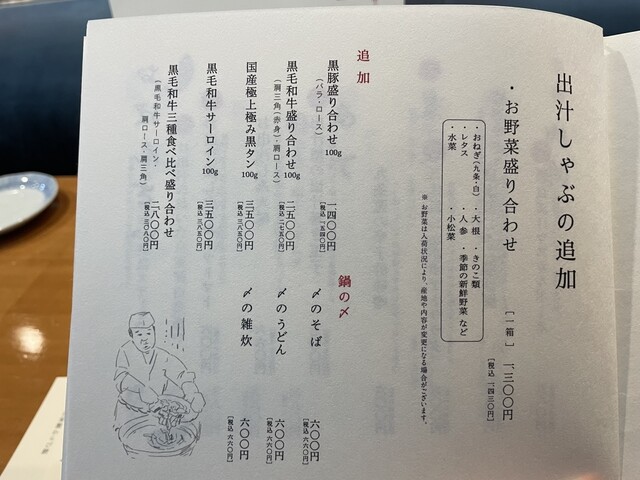 出汁しゃぶの追加
・お野菜盛り合わせ
［一箱］ 一、三〇〇円
［税込 一四三〇円］
・おねぎ（九条・白）・大根 ・きのこ類
・レタス ・人参 ・季節の新鮮野菜 など
・水菜 ・小松菜
※お野菜は入荷状況により、産地や内容が変更になる場合がございます。
追加
黒豚盛り合わせ 100g 一四〇〇円
（バラ・ロース） ［税込 一五四〇円］
黒毛和牛盛り合わせ 100g 二五〇〇円
（肩三角（赤身）・肩ロース） ［税込 二七五〇円］
国産極上極み黒タン 100g 三五〇〇円
［税込 三八五〇円］
黒毛和牛サーロイン 100g 三五〇〇円
［税込 三八五〇円］
黒毛和牛三種食べ比べ盛り合わせ
（黒毛和牛サーロイン・
肩ロース・肩三角）
二八〇〇円
［税込 三〇八〇円］
鍋の〆
〆のそば 六〇〇円
［税込 六六〇円］
〆のうどん 六〇〇円
［税込 六六〇円］
〆の雑炊 六〇〇円
［税込 六六〇円］